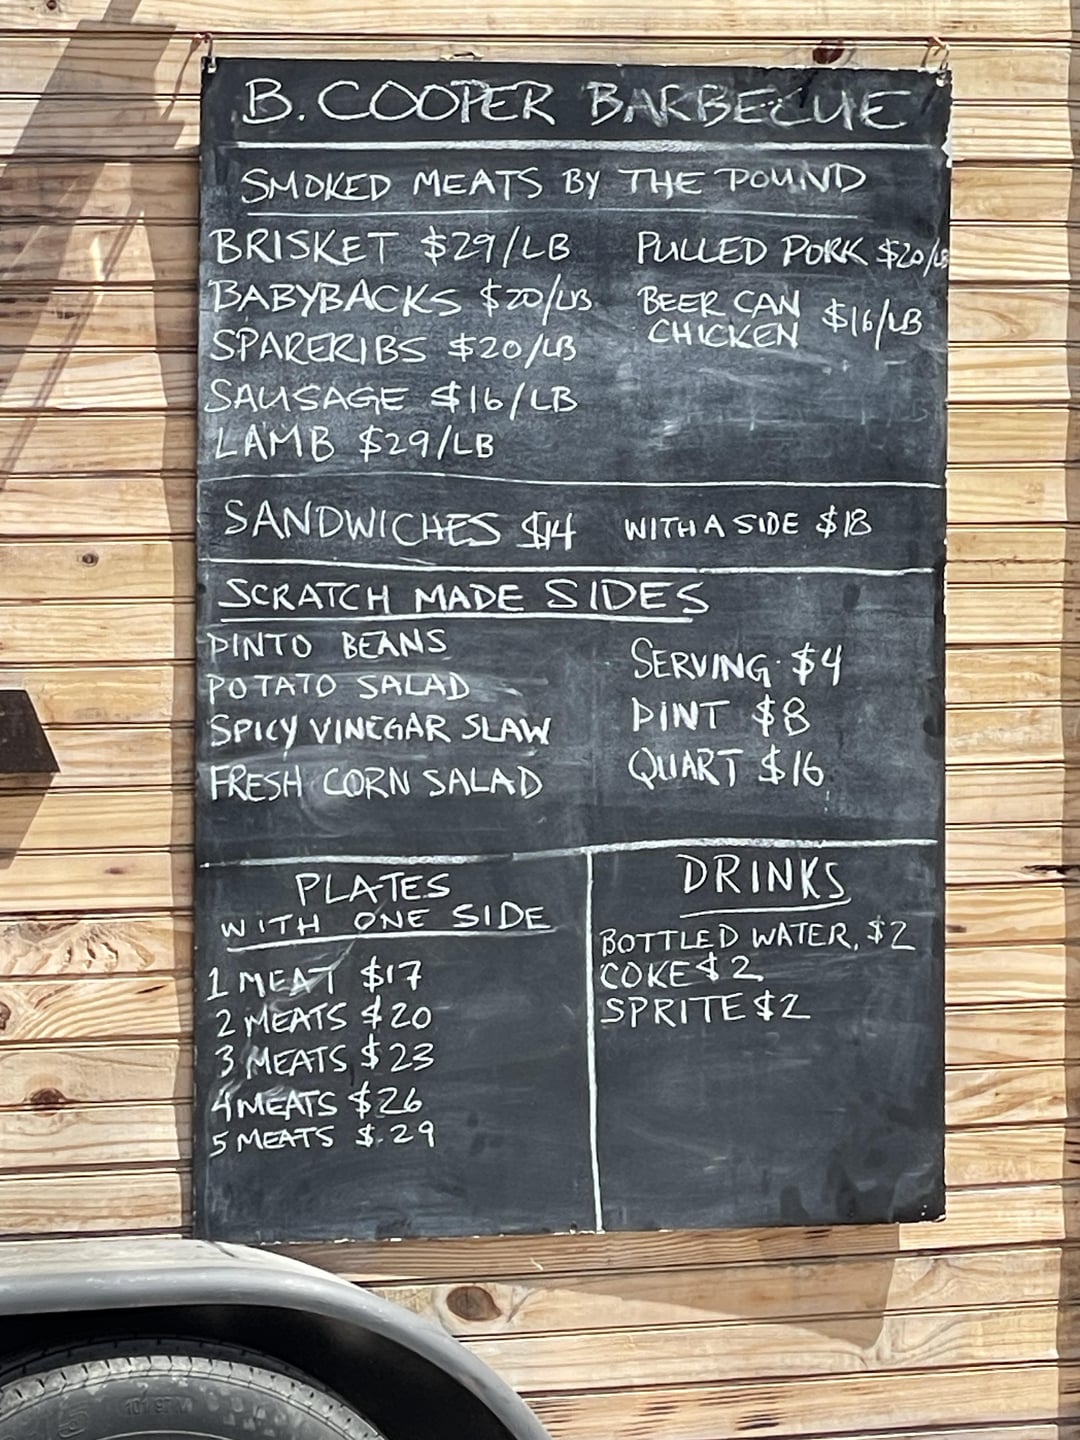 B. COOPER BARBECUE
SMOKED MEATS BY THE POUND
BRISKET $29/LB
BABYBACKS $20/LB
SPARERIBS $20/LB
SAUSAGE $16/LB
LAMB $29/LB
PULLED PORK $20/LB
BEER CAN
CHICKEN $16/LB
SANDWICHES $14 WITH A SIDE $18
SCRATCH MADE SIDES
PINTO BEANS
POTATO SALAD
SPICY VINEGAR SLAW
FRESH CORN SALAD
SERVING $4
PINT $8
QUART $16
PLATES
WITH ONE SIDE
1 MEAT $17
2 MEATS $20
3 MEATS $23
4 MEATS $26
5 MEATS $29
DRINKS
BOTTLED WATER, $2
COKE $2
SPRITE $2